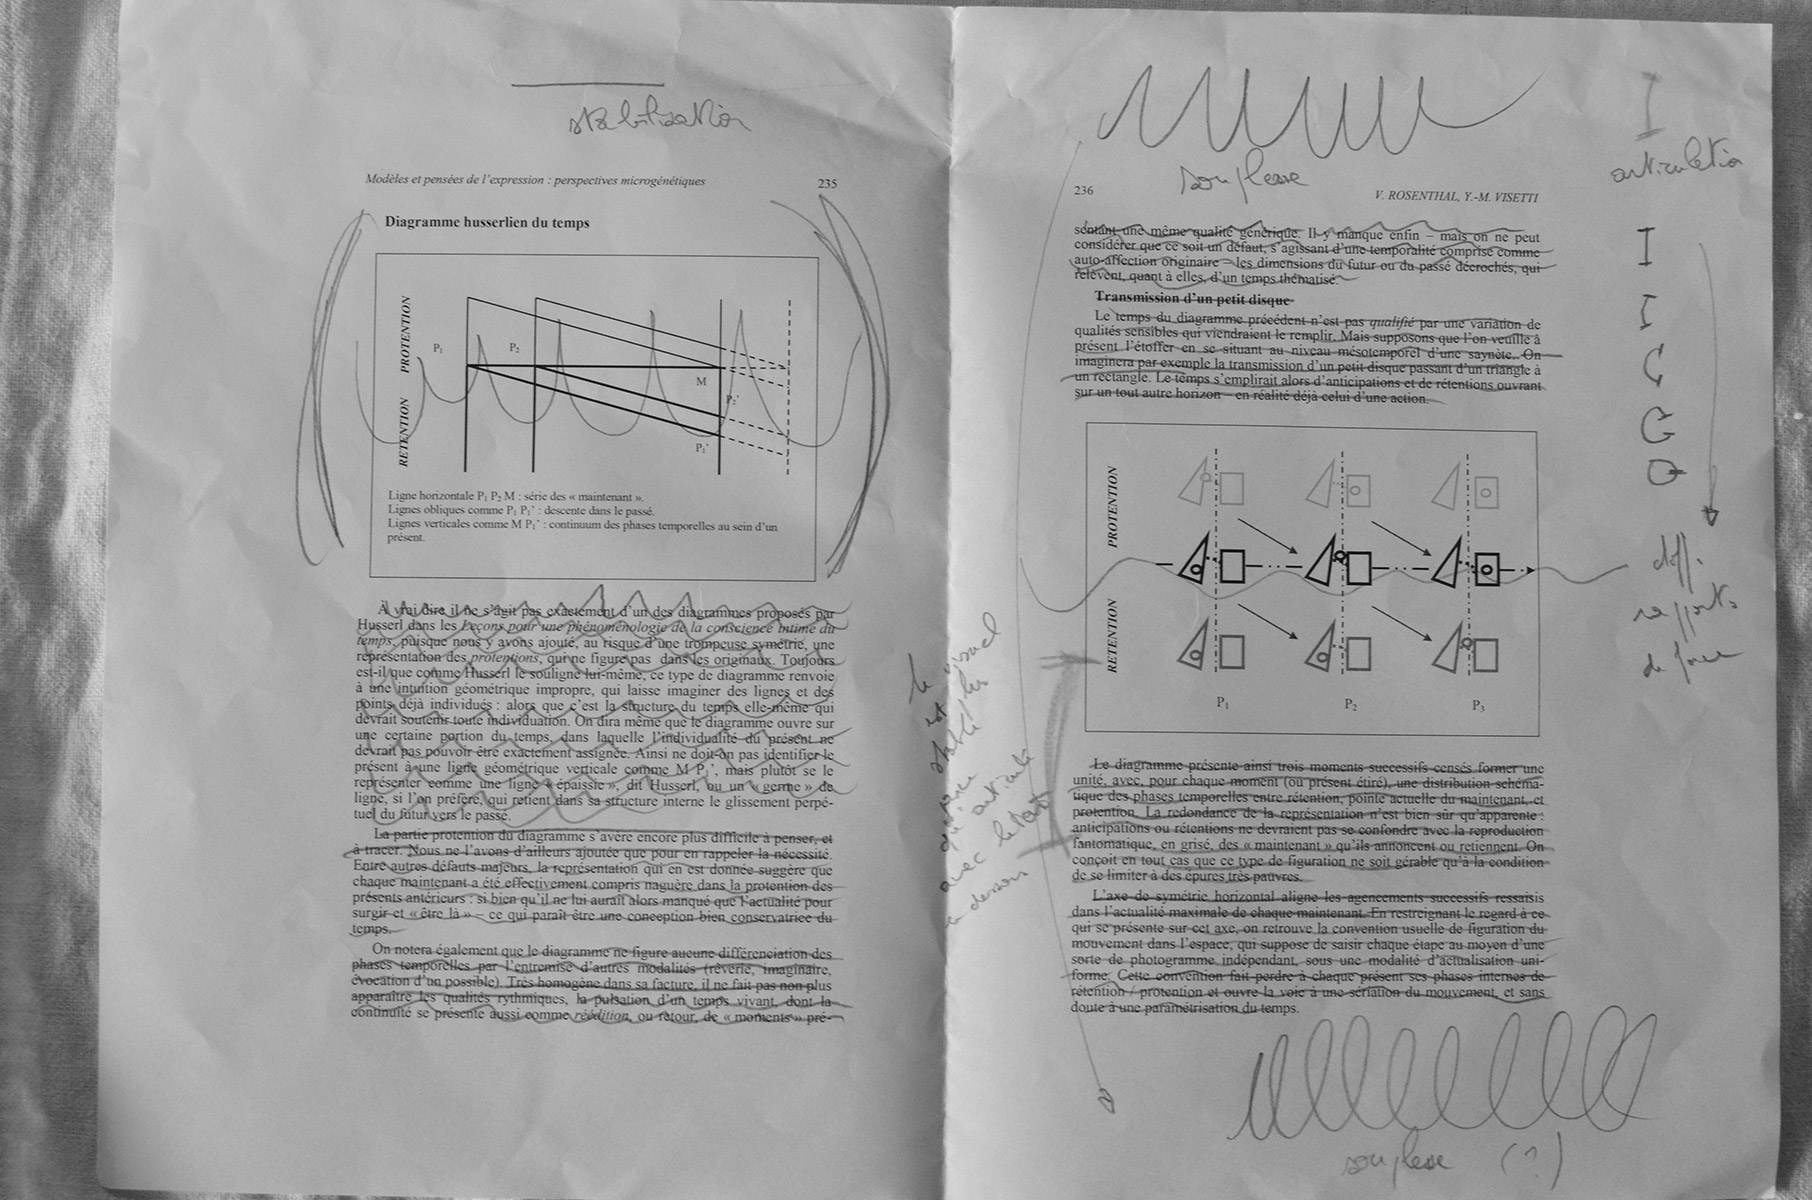 stabilisation
Modèles et pensées de l'expression : perspectives microgénétiques 235
Diagramme husserlien du temps
PROTENTION
RETENTION
P₁
P₂
M
P₂'
P₁'
Ligne horizontale P₁ P₂ M : série des « maintenant ».
Lignes obliques comme P₁ P₁' : descente dans le passé.
Lignes verticales comme M P₁' : continuum des phases temporelles au sein d'un
présent.
À vrai dire il ne s'agit pas exactement d'un des diagrammes proposés par
Husserl dans les Leçons pour une phénoménologie de la conscience intime du
temps, puisque nous y avons ajouté, au risque d'une trompeuse symétrie, une
représentation des protentions, qui ne figure pas dans les originaux. Toujours
est-il que comme Husserl le souligne lui-même, ce type de diagramme renvoie
à une intuition géométrique impropre, qui laisse imaginer des lignes et des
points déjà individués : alors que c'est la structure du temps elle-même qui
devrait soutenir toute individuation. On dira même que le diagramme ouvre sur
une certaine portion du temps, dans laquelle l'individualité du présent ne
devrait pas pouvoir être exactement assignée. Ainsi ne doit-on pas identifier le
présent à une ligne géométrique verticale comme M P₁', mais plutôt se le
représenter comme une ligne « épaissie », dit Husserl, ou un « germe » de
ligne, si l'on préfère, qui retient dans sa structure interne le glissement perpé-
tuel du futur vers le passé.
La partie protention du diagramme s'avère encore plus difficile à penser, et
à tracer. Nous ne l'avons d'ailleurs ajoutée que pour en rappeler la nécessité.
Entre autres défauts majeurs, la représentation qui en est donnée suggère que
chaque maintenant a été effectivement compris naguère dans la protention des
présents antérieurs : si bien qu'il ne lui aurait alors manqué que l'actualité pour
surgir et « être là » – ce qui paraît être une conception bien conservatrice du
temps.
On notera également que le diagramme ne figure aucune différenciation des
phases temporelles par l'entremise d'autres modalités (rêverie, imaginaire,
évocation d'un possible). Très homogène dans sa facture, il ne fait pas non plus
apparaître les qualités rythmiques, la pulsation d'un temps vivant, dont la
continuité se présente aussi comme réédition, ou retour, de « moments » pré-
le visuel
est plus
stable
articulé
avec le texte
souplesse
236 V. ROSENTHAL, Y.-M. VISETTI
sentant une même qualité générique. Il y manque enfin – mais on ne peut
considérer que ce soit un défaut, s'agissant d'une temporalité comprise comme
auto-affection originaire – les dimensions du futur ou du passé décrochés, qui
relèvent, quant à elles, d'un temps thématisé.
Transmission d'un petit disque
Le temps du diagramme précédent n'est pas qualifié par une variation de
qualités sensibles qui viendraient le remplir. Mais supposons que l'on veuille à
présent l'étoffer en se situant au niveau mésotemporel d'une saynète. On
imaginera par exemple la transmission d'un petit disque passant d'un triangle à
un rectangle. Le temps s'emplirait alors d'anticipations et de rétentions ouvrant
sur un tout autre horizon – en réalité déjà celui d'une action.
PROTENTION
RETENTION
P₁
P₂
P₃
Le diagramme présente ainsi trois moments successifs censés former une
unité, avec, pour chaque moment (ou présent étiré), une distribution schéma-
tique des phases temporelles entre rétention, pointe actuelle du maintenant, et
protention. La redondance de la représentation n'est bien sûr qu'apparente :
anticipations ou rétentions ne devraient pas se confondre avec la reproduction
fantomatique, en grisé, des « maintenant » qu'ils annoncent ou retiennent. On
conçoit en tout cas que ce type de figuration ne soit gérable qu'à la condition
de se limiter à des épures très pauvres.
L'axe de symétrie horizontal aligne les agencements successifs ressaisis
dans l'actualité maximale de chaque maintenant. En restreignant le regard à ce
qui se présente sur cet axe, on retrouve la convention usuelle de figuration du
mouvement dans l'espace, qui suppose de saisir chaque étape au moyen d'une
sorte de photogramme indépendant, sous une modalité d'actualisation uni-
forme. Cette convention fait perdre à chaque présent ses phases internes de
rétention / protention et ouvre la voie à une sériation du mouvement, et sans
doute à une paramétrisation du temps.
souplesse (?)
articulation
diff.
rapports
de force